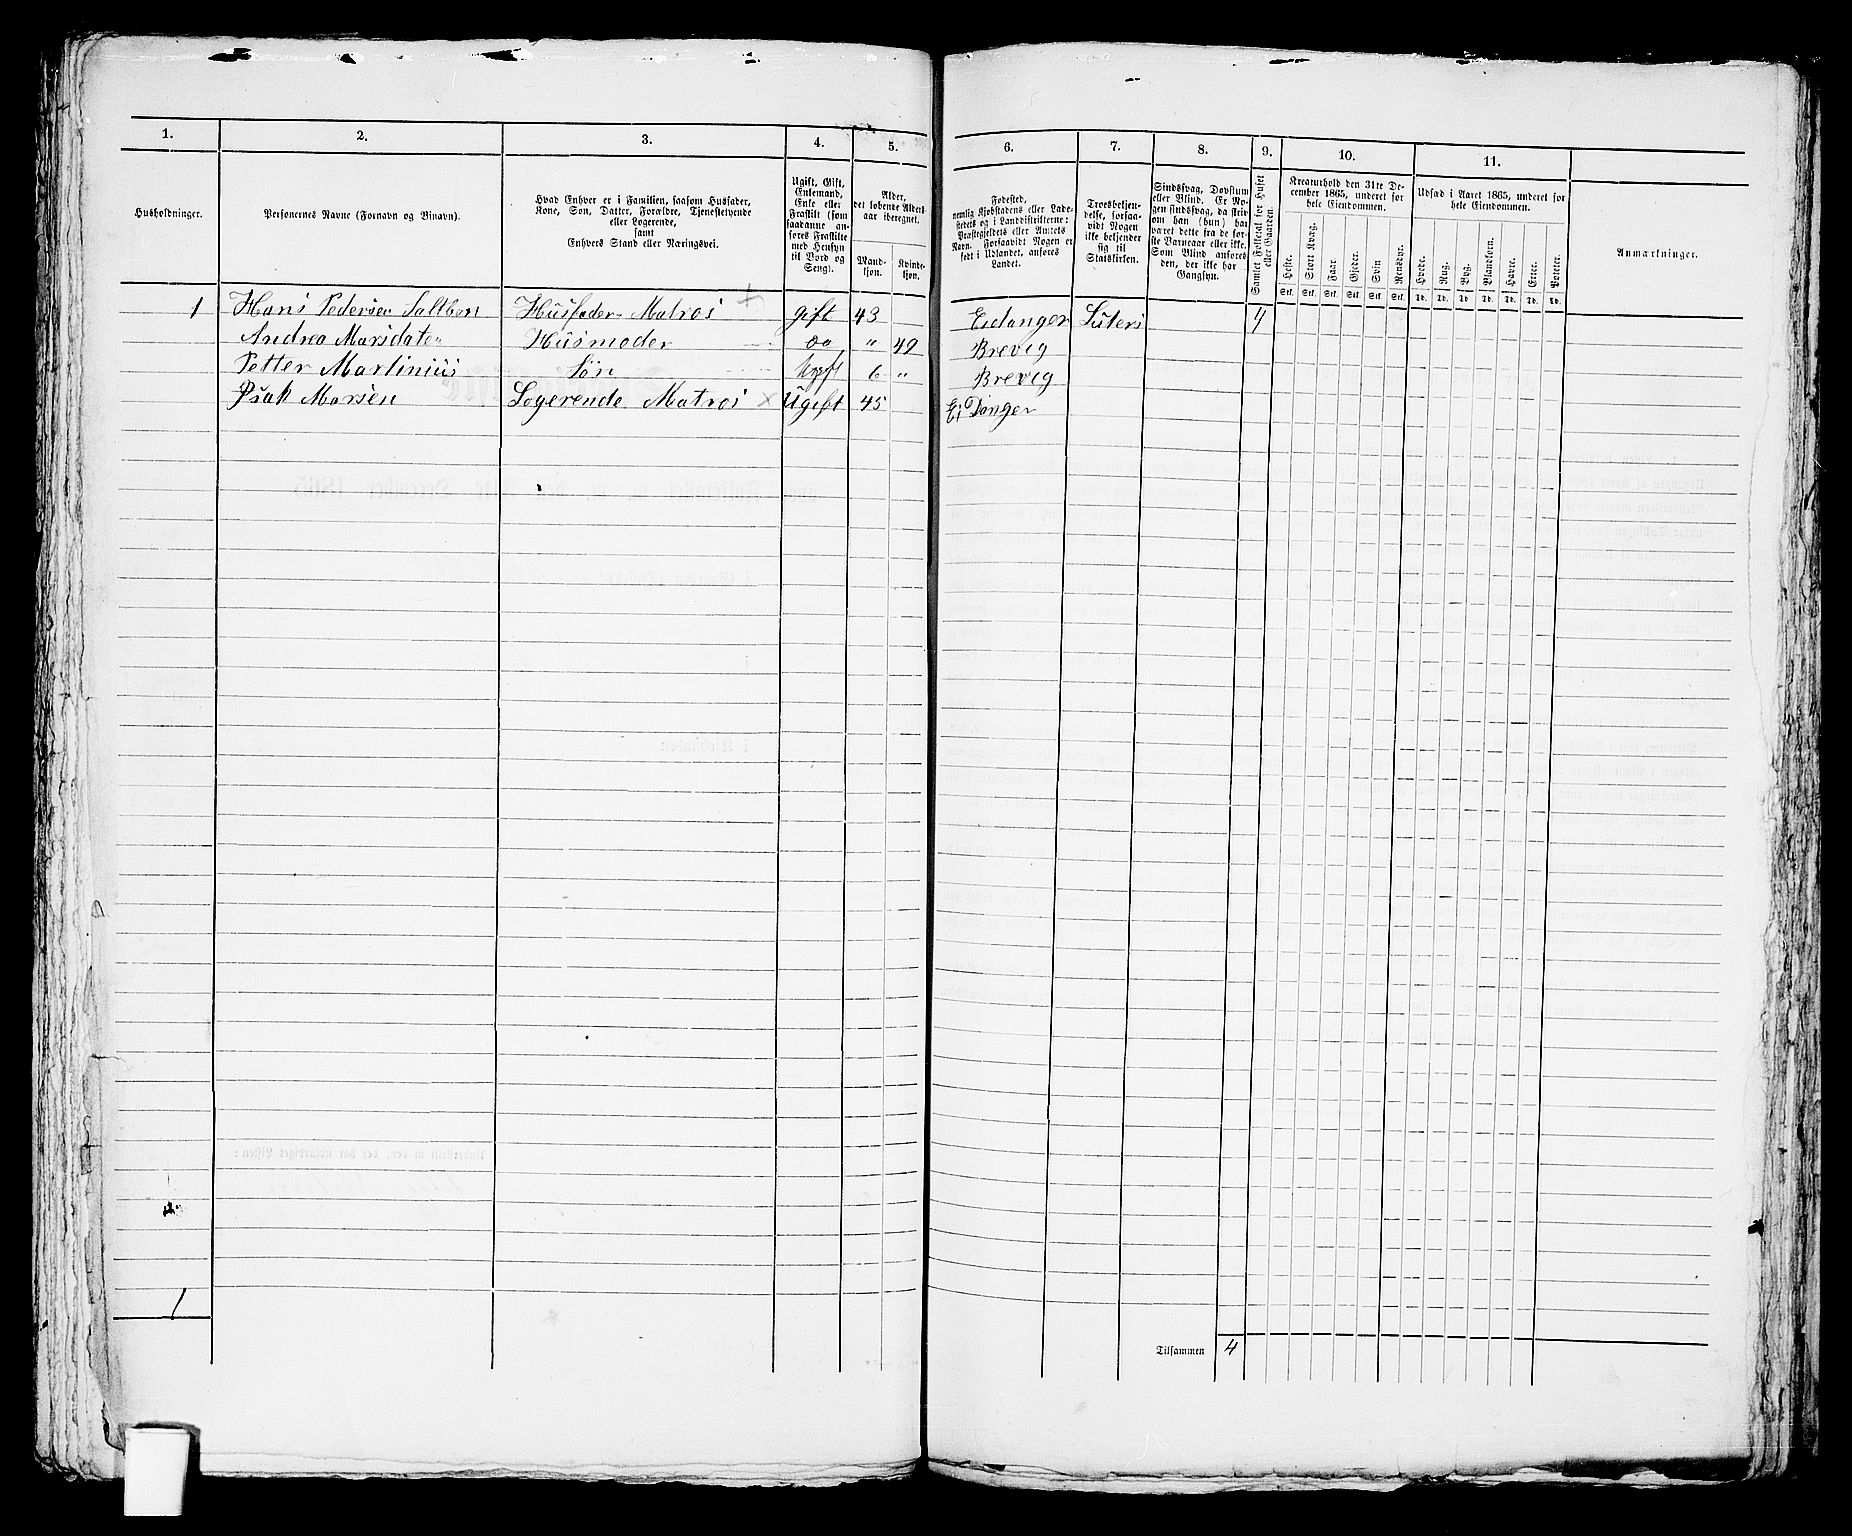 1. 2. 3. 4. 5. 6. 7. 8. 9. 10. 11.
Husholdninger.
Personernes Navne (Fornavn og Tilnavn).
Hvad Enhver er i Familien, saasom Husfader,
Kone, Søn, Datter, Forældre, Tjenestetyende
eller Logerende,
samt
Enhvers Stand eller Næringsvei.
Ugift, Gift,
Enkemand,
Enke eller
Fraskilt (som
saadanne an-
føres Fraskilte
med Hensyn
til Bord og
Seng).
Alder,
det løbende Alders-
aar iberegnet.
Mand-
kjøn.
Kvinde-
kjøn.
Fødested,
nemlig Kjøbstadens eller Lade-
stedets og i Landdistrikterne:
Præstegjeldets eller Amtets
Navn. Forsaavidt Nogen er
født i Udlandet, anføres
Landet.
Troesbekjen-
delse, forsaa-
vidt Nogen
ikke bekjender
sig til
Statskirken.
Sindssvag, Døvstum
eller Blind. Er No-
gen sindssvag, da skriv
om han (hun) har
været dette fra de før-
ste Barneaar eller ikke.
Som Blind anføres
den, der ikke har
Gangsyn.
Samlet Folketal for Huset
eller Gaarden.
Kreaturhold den 31te De-
cember 1865, underet for
hele Eiendommen.
Heste. Stort Kvæg. Faar. Gjeder. Svin Rensdyr.
Stk. Stk. Stk. Stk. Stk. Stk.
Udsæd i Aaret 1865, underet for
hele Eiendommen.
Hvede. Rug. Byg. Blandkorn. Havre. Erter. Poteter.
Td. Td. Td. Td. Td. Td. Td.
Anmærkninger.
1 Hans Pedersen Saltbon Husfader Matros + gift 43 Eidanger Luters 4
Andrea Marsdater Husmoder do " 49 Brevig
Petter Martinius Søn Ugift 6 " Brevig
Isak Marsen Logerende Matros x Ugift 45 Ei Danger
1
Tilsammen 4